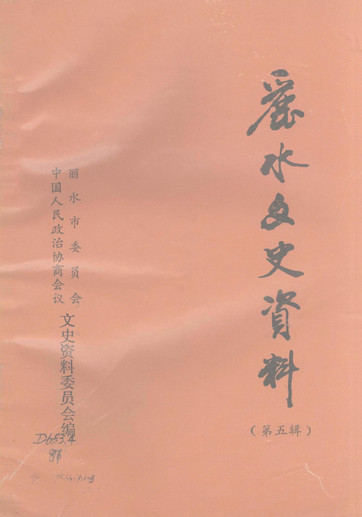 麗水文史資料
（第五辑）
中国人民政治协商会议
丽水市委员会
文史资料委员会编
D653.4